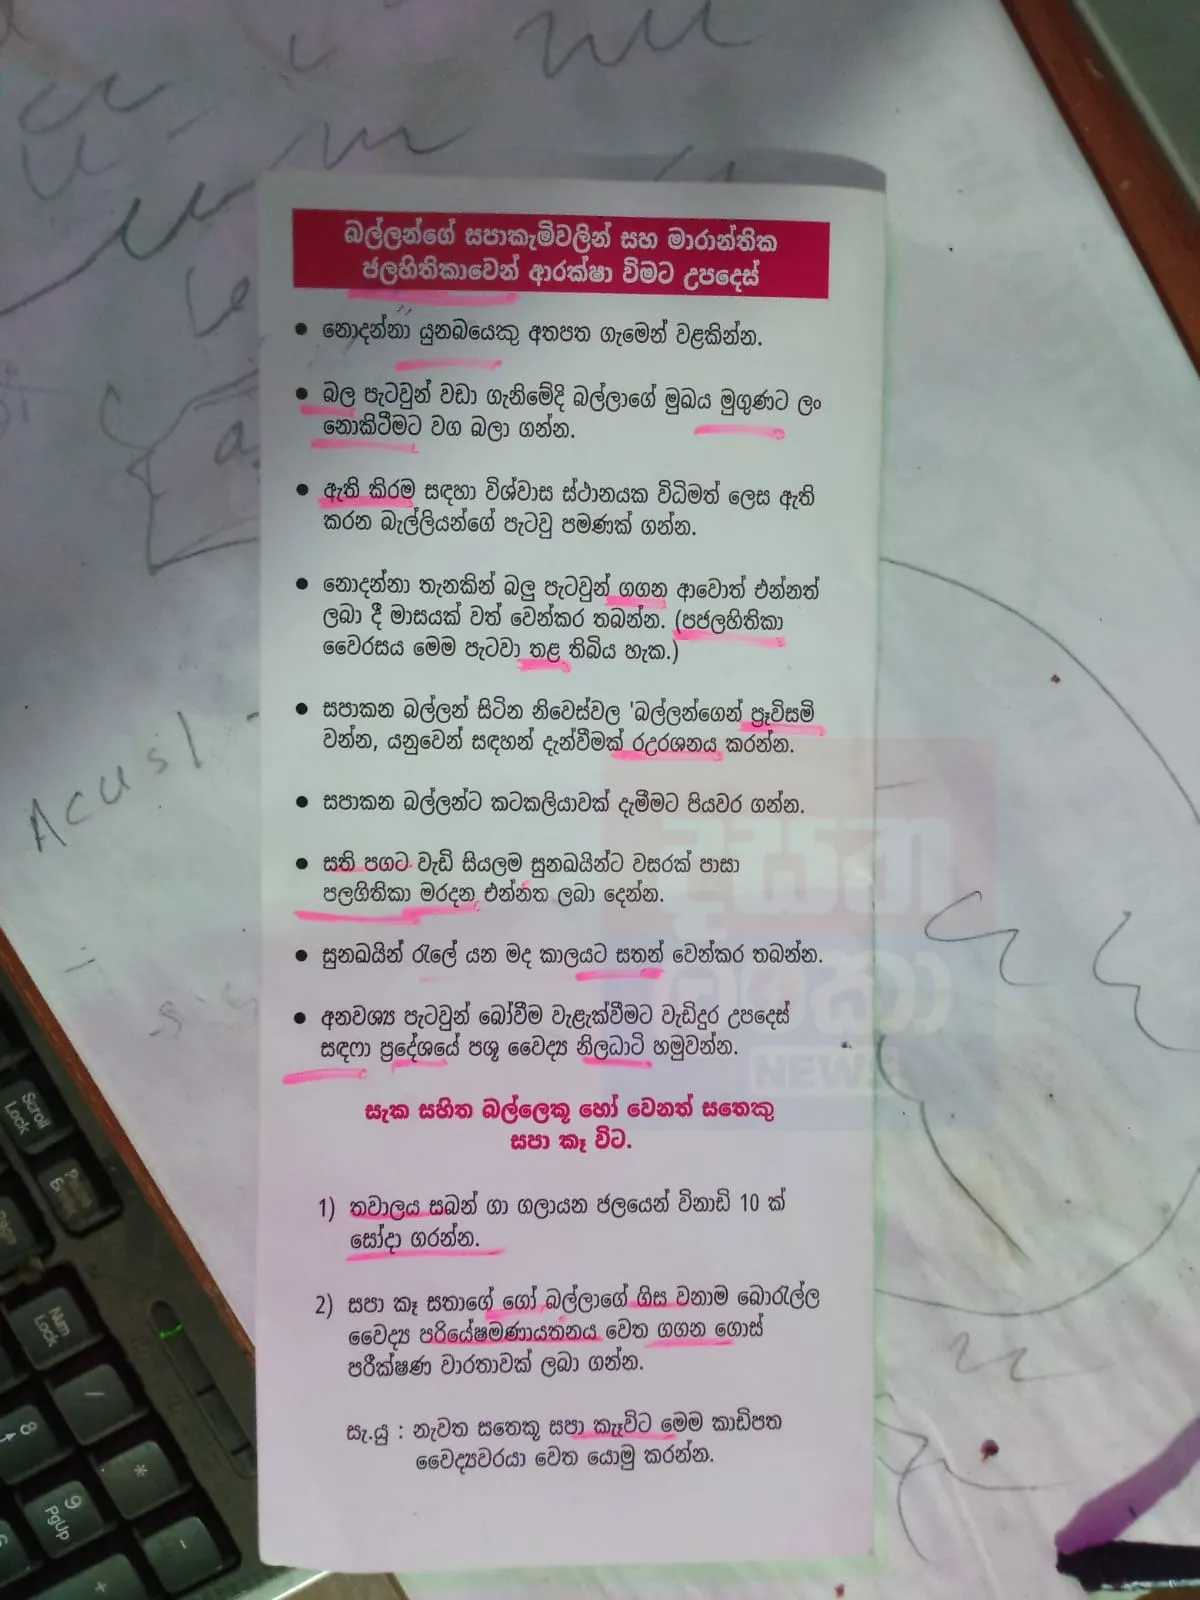 බල්ලන්ගේ සපාකෑම්වලින් සහ මාරාන්තික
ජලහිතිකාවෙන් ආරක්ෂා විමට උපදෙස්
● නොදන්නා යුනබයෙකු අතපත ගැමෙන් වළකින්න.
● බල පැටවුන් වඩා ගැනිමේදි බල්ලාගේ මුඛය මුගුණට ලං
නොකිටීමට වග බලා ගන්න.
● ඇති කිරම සඳහා විශ්වාස ස්ථානයක විධිමත් ලෙස ඇති
කරන බැල්ලියන්ගේ පැටවු පමණක් ගන්න.
● නොදන්නා තැනකින් බලු පැටවුන් ගගන ආවොත් එන්නත්
ලබා දී මාසයක් වත් වෙන්කර තබන්න. (පජලහිතිකා
වෛරසය මෙම පැටවා තළ තිබිය හැක.)
● සපාකන බල්ලන් සිටින නිවෙස්වල 'බල්ලන්ගෙන් ප්‍රෑවිසම්
වන්න, යනුවෙන් සඳහන් දැන්වීමක් රඋරශනය කරන්න.
● සපාකන බල්ලන්ට කටකලියාවක් දැමීමට පියවර ගන්න.
● සති පගට වැඩි සියලම සුනඛයින්ට වසරක් පාසා
පලගිතිකා මරදන එන්නත ලබා දෙන්න.
● සුනඛයින් රැලේ යන මද කාලයට සතන් වෙන්කර තබන්න.
● අනවශ්‍ය පැටවුන් බෝවීම වැළැක්වීමට වැඩිදුර උපදෙස්
සඳෆා ප්‍රදේශයේ පශු වෛද්‍ය නිලධාටි හමුවන්න.
සැක සහිත බල්ලෙකූ හෝ වෙනත් සතෙකු
සපා කෑ විට.
1) තවාලය සබන් ගා ගලායන ජලයෙන් විනාඩි 10 ක්
සෝදා ගරන්න.
2) සපා කෑ සතාගේ ගෝ බල්ලාගේ ගිස වනාම බොරැල්ල
වෛද්‍ය පරියේෂමණායතනය වෙත ගගන ගොස්
පරීක්ෂණ වාරතාවක් ලබා ගන්න.
සැ.යු : නැවත සතෙකු සපා කෑෑවිට මෙම කාඩ්පත
වෛද්‍යවරයා වෙත යොමු කරන්න.
දසත
ලංකා
NEWS
Acusl
Scroll
Lock
Num
Lock
/
8
*
9
PgUp
-
+